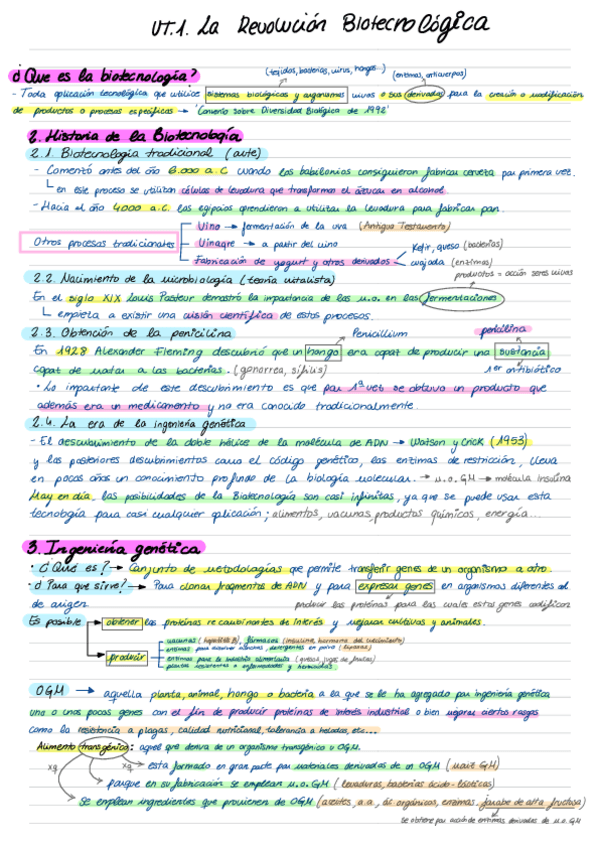 UT.1. La Revolución Biotecnológica
¿Que es la biotecnología?
(tejidos, bacterias, virus, hongos...)
(enzimas, anticuerpos)
- Toda aplicación tecnológica que utilice sistemas biológicos y organismos vivos o sus derivados para la creación o modificación
de productos o procesos específicos → 'Convenio sobre Diversidad Biológica de 1992'
2. Historia de la Biotecnología
2.1. Biotecnología tradicional (arte)
- Comentó antes del año 6.000 a.C cuando los babilonios consiguieron fabricar cerveta por primera vez.
en este proceso se utilizan células de levadura que transforma el azúcar en alcohol
- Hacia el año 4000 a.c. los egipcios aprendieron a utilizar la levadura para fabricar pan.
Vino → fermentación de la uva (Antiguo Testamento)
Otros procesos tradicionales
Vinagre → a partir del vino
Kefir, queso (bacterias)
Fabricación de yogurt y otros derivados
cuajada (enzimas)
2.2. Nacimiento de la microbiología (teoría vitalista)
productos = acción seres vivos
En el siglo XIX Louis Pasteur demostró la importancia de los m.o. en las fermentaciones
empieza a existir una visión científica de estos procesos.
2.3. Obtención de la penicilina
Penicillium
penicilina
En 1928 Alexander Fleming descubrió que un hongo era capaz de producir una sustancia
capaz de matar a las bacterias. (gonorrea, sífilis)
1er antibiótico
· Lo importante de este descubrimiento es que por 1ª vez se obtuvo un producto que
además era un medicamento y no era conocido tradicionalmente.
2.4. La era de la ingeniería genética
- El descubrimiento de la doble hélice de la molécula de ADN → Watson y Crick (1953)
y los posteriores descubrimientos como el código genético, las enzimas de restricción, lleva
en pocos años un conocimiento profundo de la biología molecular. → m.o. GM → molécula insulina
Hoy en día, las posibilidades de la Biotecnología son casi infinitas, ya que se puede usar esta
tecnología para casi cualquier aplicación; alimentos, vacunas, productos químicos, energía...
3. Ingeniería genética
· ¿Qué es? → Conjunto de metodologías que permite transferir genes de un organismo a otro.
· ¿Para que sirve? → Para clonar fragmentos de ADN y para expresar genes en organismos diferentes al
de origen
producir las proteínas para las cuales estos genes codifican
Es posible
obtener las proteínas recombinantes de interés y mejorar cultivos y animales.
vacunas (hepatitis B), fármacos (insulina, hormona del crecimiento)
enzimas para eliminar manchas, detergentes en polvo (lipasas)
producir
enzimas para la industria alimentaria (quesos, jugos de frutas)
plantas resistentes a enfermedades y herbicidas
OGM → aquella planta, animal, hongo o bacteria a la que se le ha agregado por ingeniería genética
uno o unos pocos genes con el fin de producir proteínas de interés industrial o bien mejorar ciertos rasgos
como la resistencia a plagas, calidad nutricional, tolerancia a heladas, etc...
Alimento transgénico: aquel que deriva de un organismo transgénico u OGM.
xq
xq
esta formado en gran parte por materiales derivados de un OGM (maíz GM)
porque en su fabricación se emplean m.o. GM (levaduras, bacterias ácido-lácticas)
Se emplean ingredientes que provienen de OGM (aceites, a.a., ác orgánicos, enzimas. jarabe de alta fructosa)
se obtiene por acción de enzimas derivadas de m.o. GM